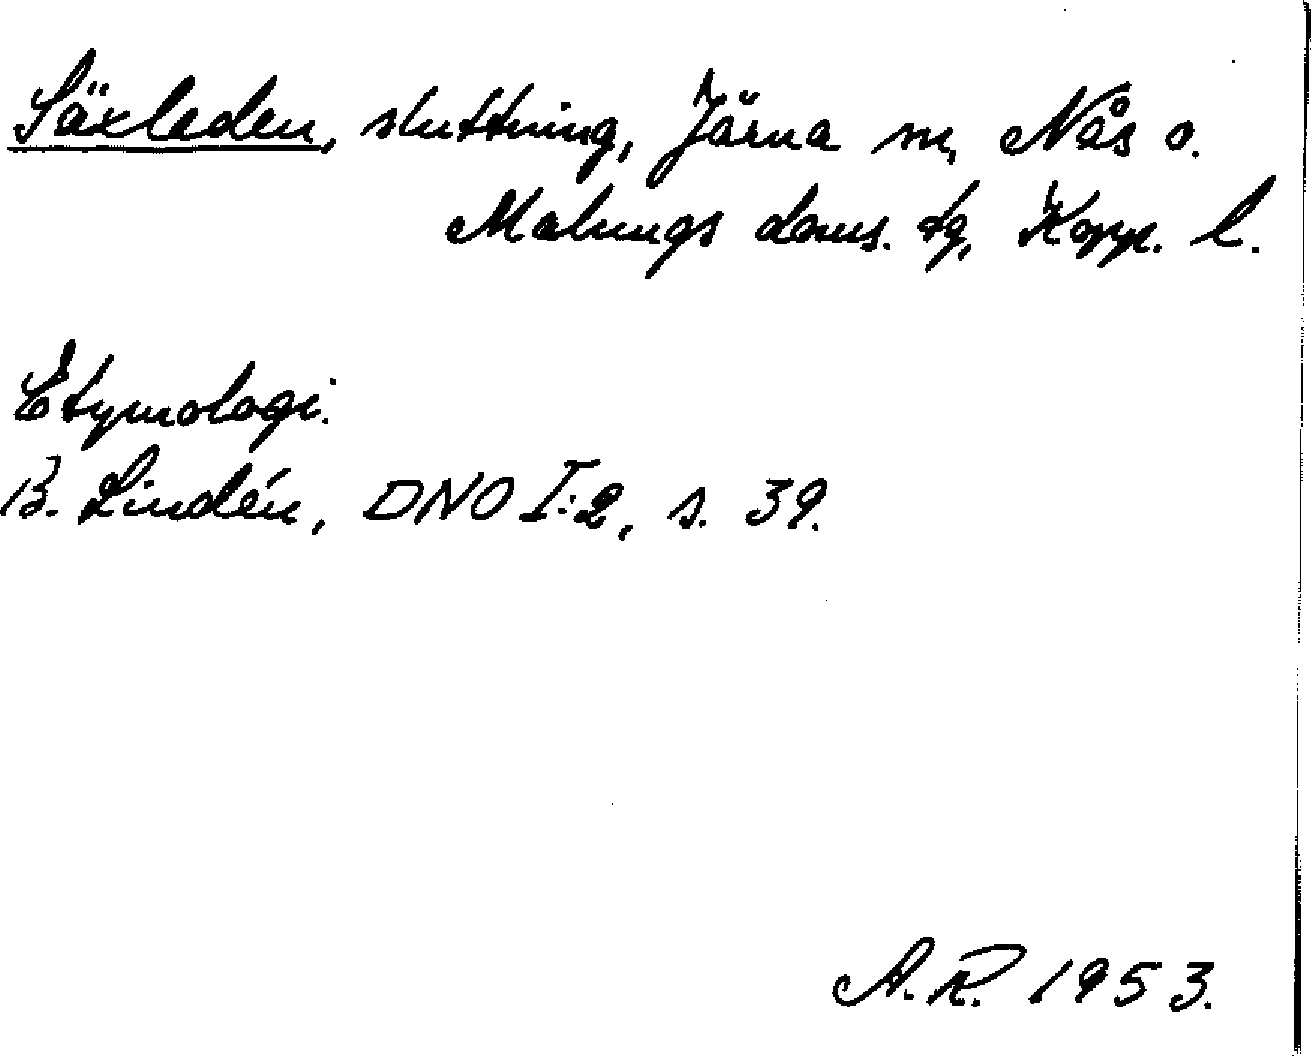 Säxladen, sluttning, Järna sn, Nås o.
Malungs doms. tg, Kopp. l.
Etymologi.
B. Lindén, DNO I:2, s. 39.
A.R. 1953.